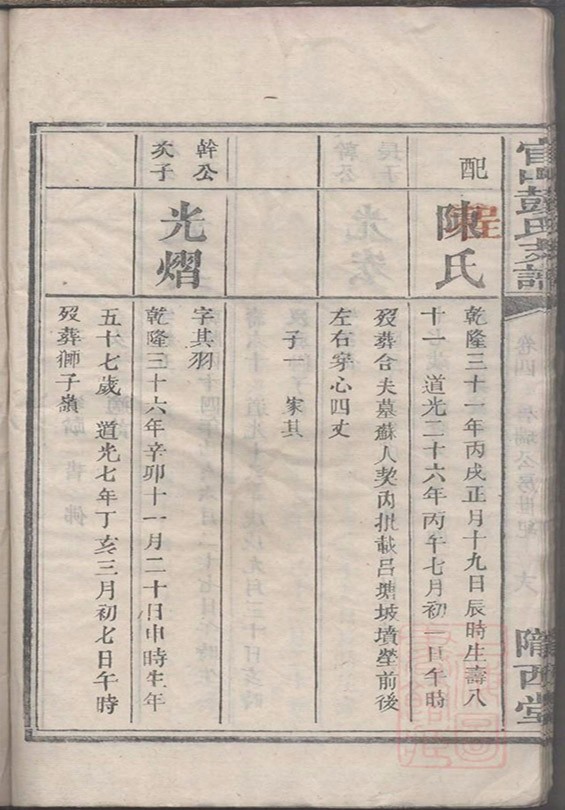 彭氏支譜
隴西堂
配
陳氏
程
乾隆三十一年丙戌正月十九日辰時生壽八
十一 道光二十六年丙午七月初一日午時
歿葬合夫墓蘇人契內批載呂塘坡墳塋前後
左右穿心四丈
子一 家其
幹公
次子
光熠
字其羽
乾隆三十六年辛卯十一月二十日申時生年
五十七歲 道光七年丁亥三月初七日午時
歿葬獅子嶺